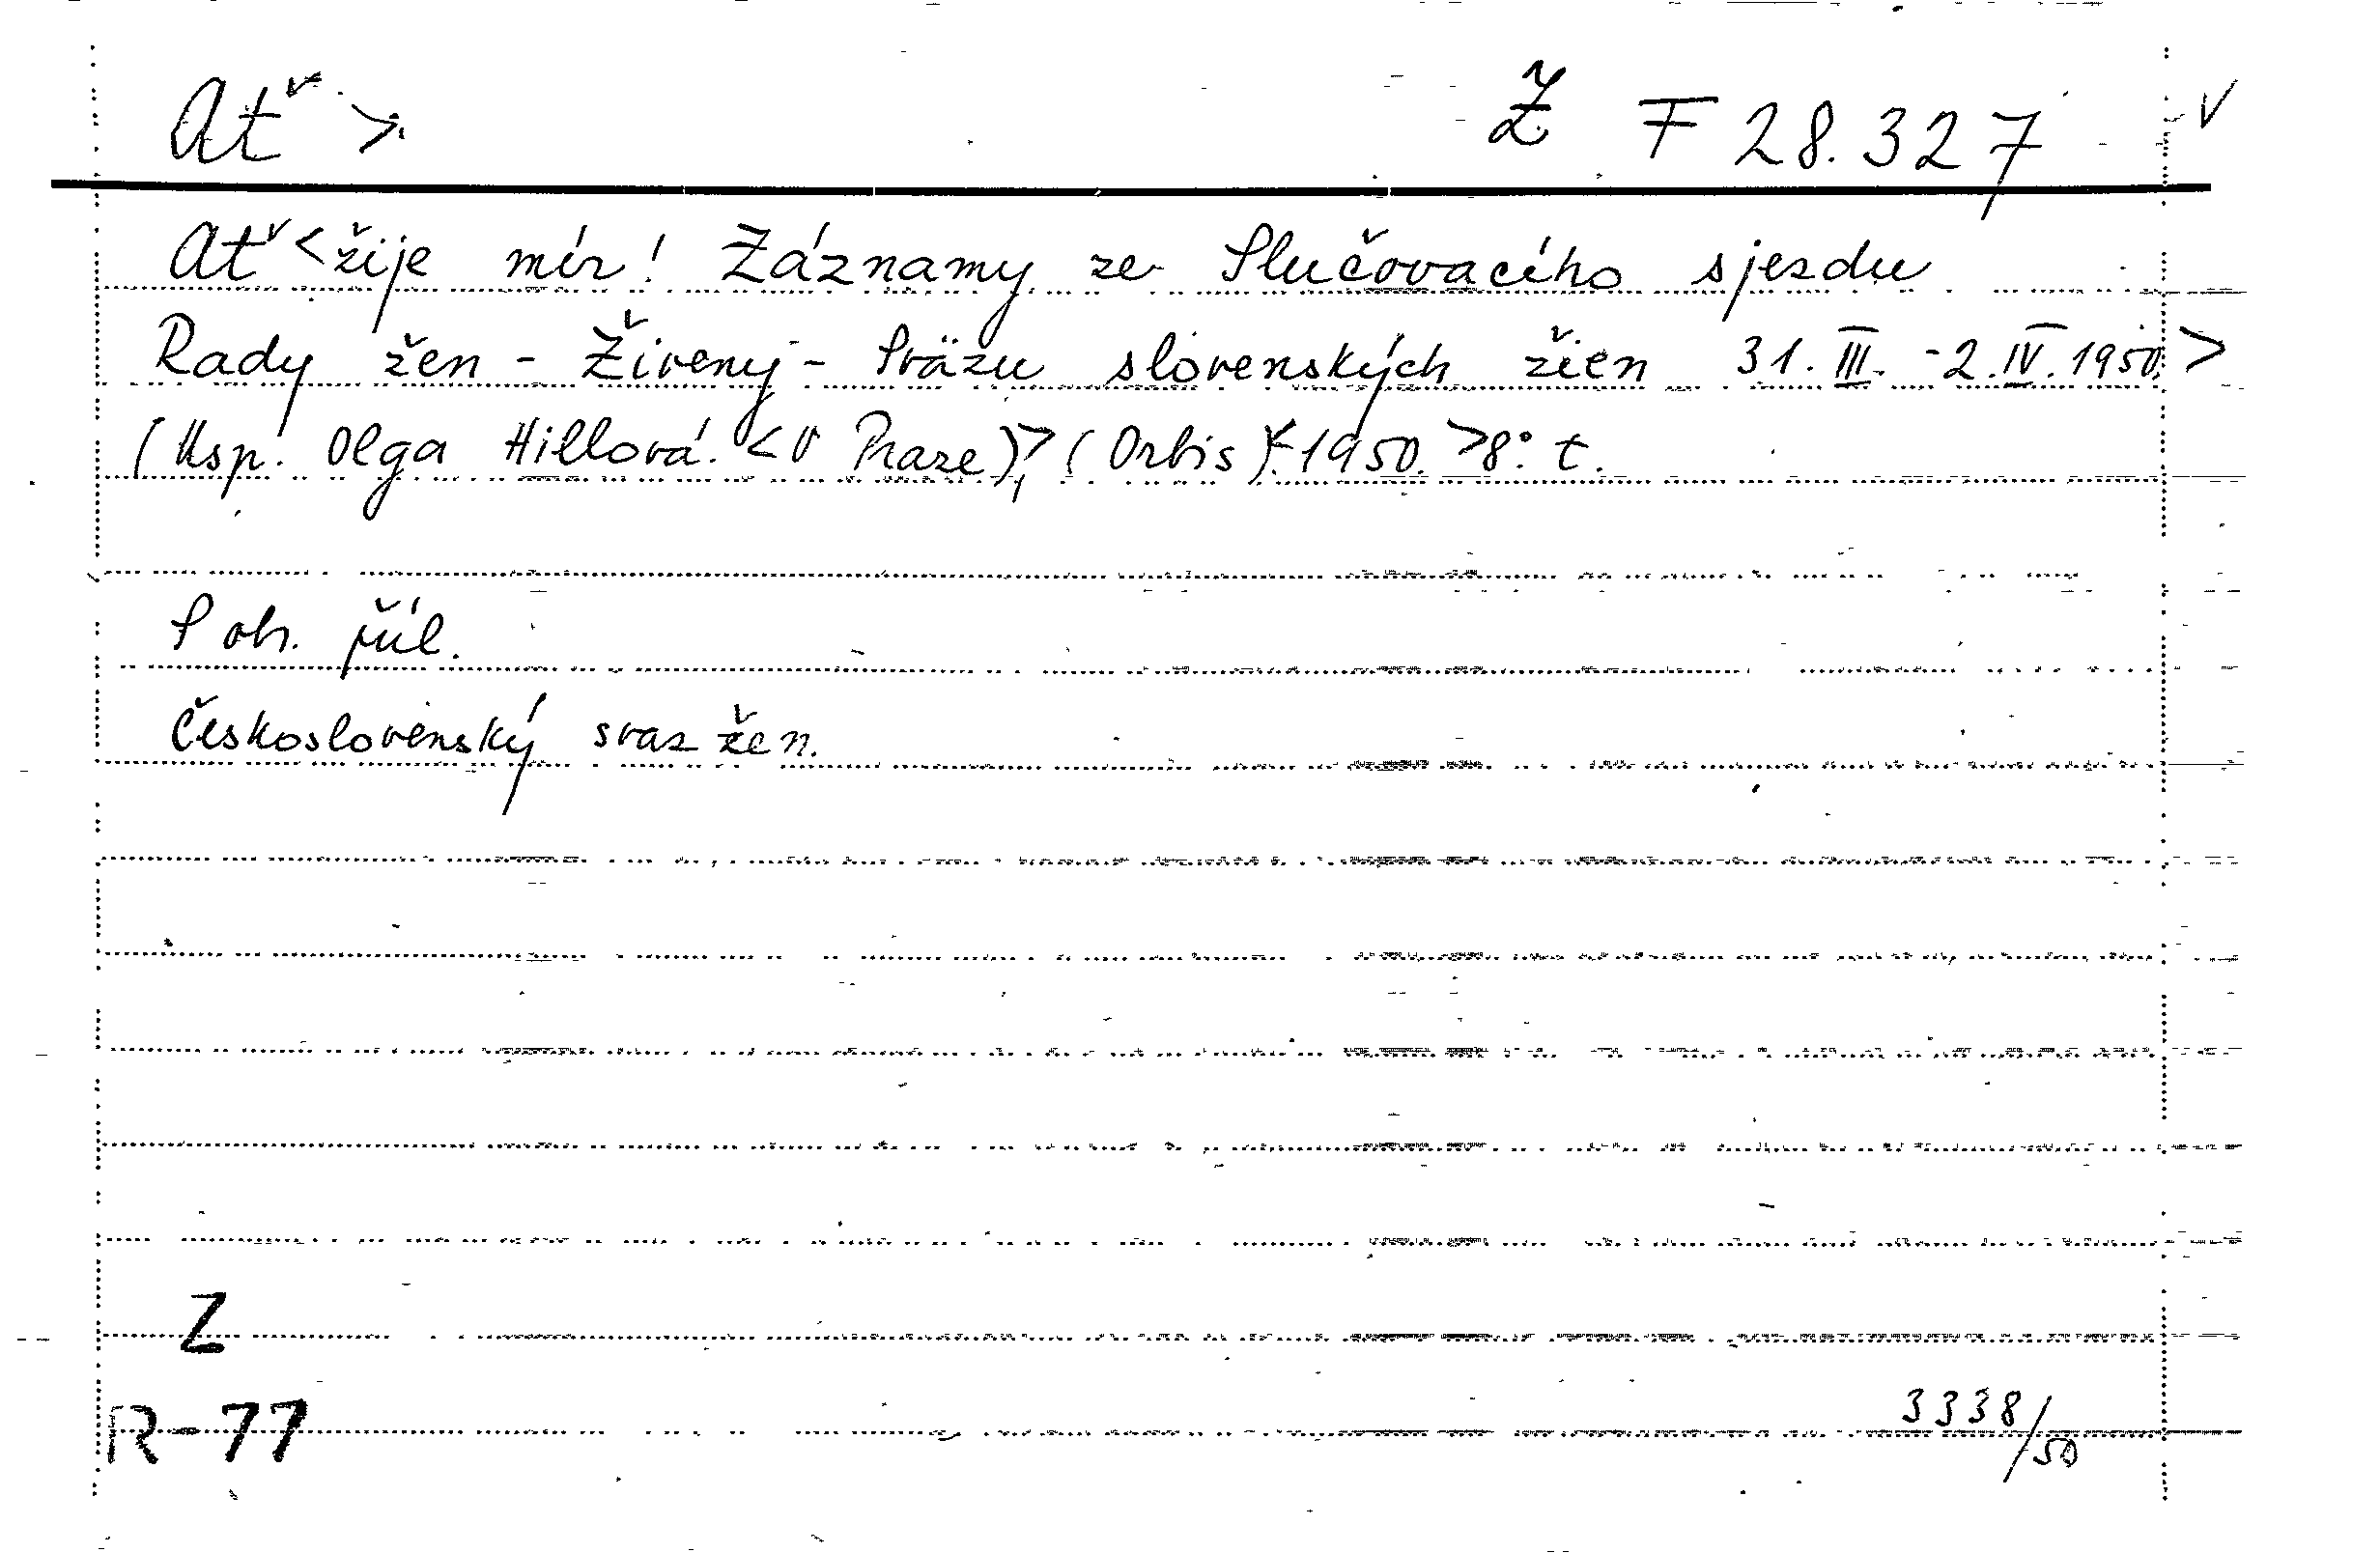 Ať > Ž F 28.327 v
Ať < žije mír! Záznamy ze Slučovacího sjezdu
Rady žen - Živeny - Sväzu slovenských žien 31. III. - 2. IV. 1950. >
(Usp. Olga Hillová. < V Praze), > (Orbis) < 1950. > 8°. t.
S obr. příl.
Československý svaz žen.
Z
R-77
3338/50